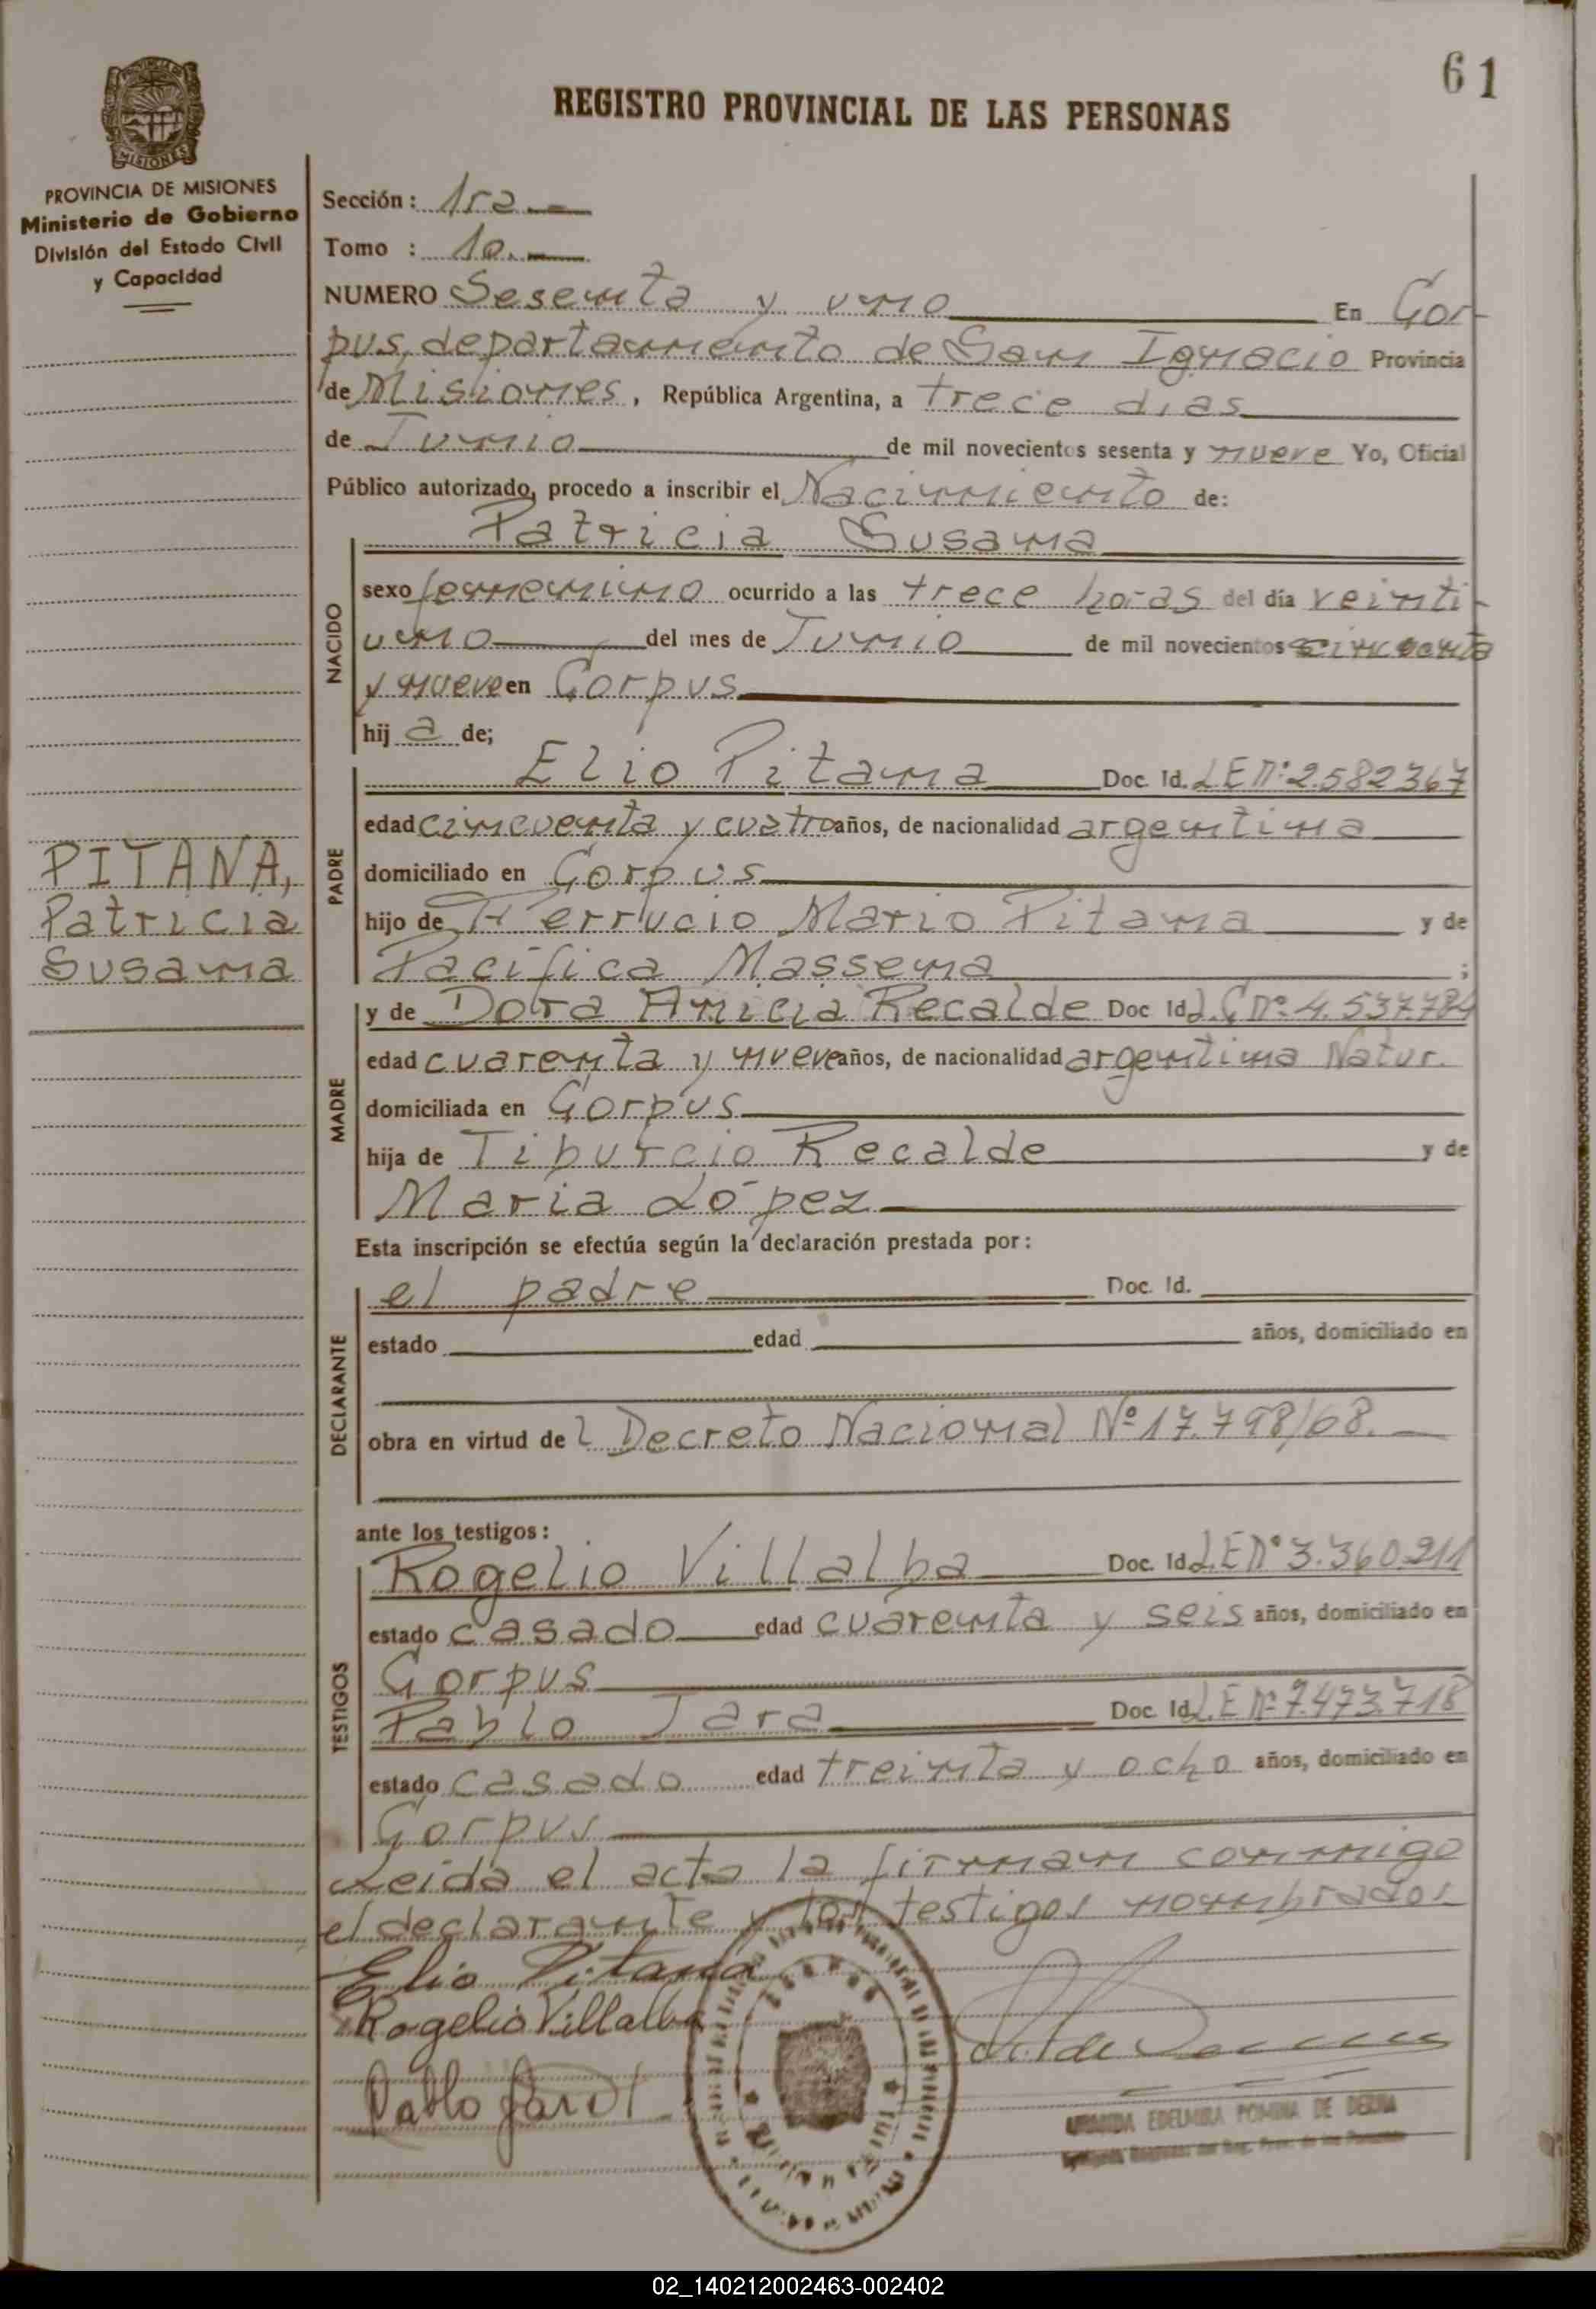 61
REGISTRO PROVINCIAL DE LAS PERSONAS
PROVINCIA DE MISIONES
Ministerio de Gobierno
División del Estado Civil
y Capacidad
Sección: 1ra
Tomo : 10.
NUMERO Sesenta y uno En Cor-
pus, departamento de San Ignacio Provincia
de Misiones, República Argentina, a trece dias
de Junio de mil novecientos sesenta y nueve Yo, Oficial
Público autorizado, procedo a inscribir el Nacimiento de:
Patricia Susana
NACIDO
sexo femenino ocurrido a las trece horas del día veinti-
uno del mes de Junio de mil novecientos cincuenta
y nueve en Corpus
hij a de;
PADRE
Elio Pitana Doc. Id. LE Nº 2.582367
edad cincuenta y cuatro años, de nacionalidad argentina
domiciliado en Corpus
hijo de Ferrucio Mario Pitana y de
Pacífica Massena ;
PITANA,
Patricia
Susana
MADRE
y de Dora Anicia Recalde Doc Id L.C Nº 4.537.784
edad cuarenta y nueve años, de nacionalidad argentina Natur.
domiciliada en Corpus
hija de Tiburcio Recalde y de
Maria López
Esta inscripción se efectúa según la declaración prestada por:
DECLARANTE
el padre Doc. Id.
estado edad años, domiciliado en
obra en virtud de l Decreto Nacional Nº 17.798/68.
ante los testigos:
TESTIGOS
Rogelio Villalba Doc. Id L.E Nº 3.360.211
estado casado edad cuarenta y seis años, domiciliado en
Corpus
Pablo Jara Doc. Id L.E Nº 7.473.718
estado casado edad treinta y ocho años, domiciliado en
Corpus
Leida el acta la firman conmigo
el declarante y los testigos nombrados
Elio Pitana
Rogelio Villalba
Pablo Jara
EDELMIRA POMINA DE
02_140212002463-002402